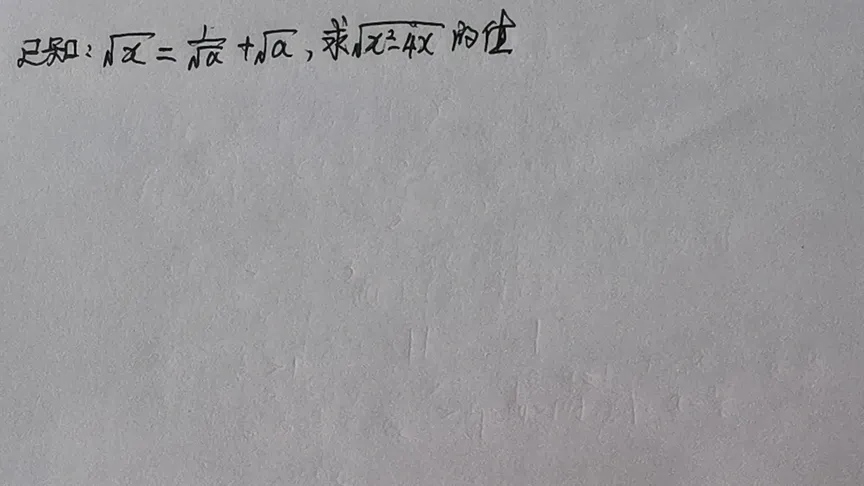 已知:√x = 1/√a + √a, 求√(x²-4x) 的值